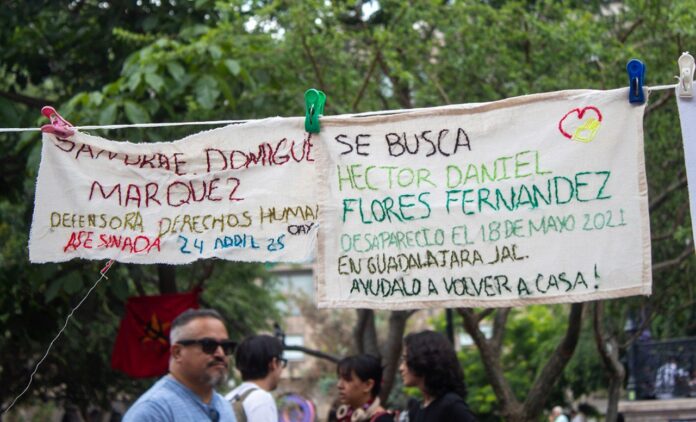 SANDRAE. DOMÍGUE
MARQUEZ
DEFENSORA DERECHOS HUMAN
OAX
ASESINADA 24 ABRIL 25
SE BUSCA
HECTOR DANIEL
FLORES FERNANDEZ
DESAPARECIO EL 18 DE MAYO 2021
EN GUADALAJARA JAL.
AYUDALO A VOLVER A CASA!